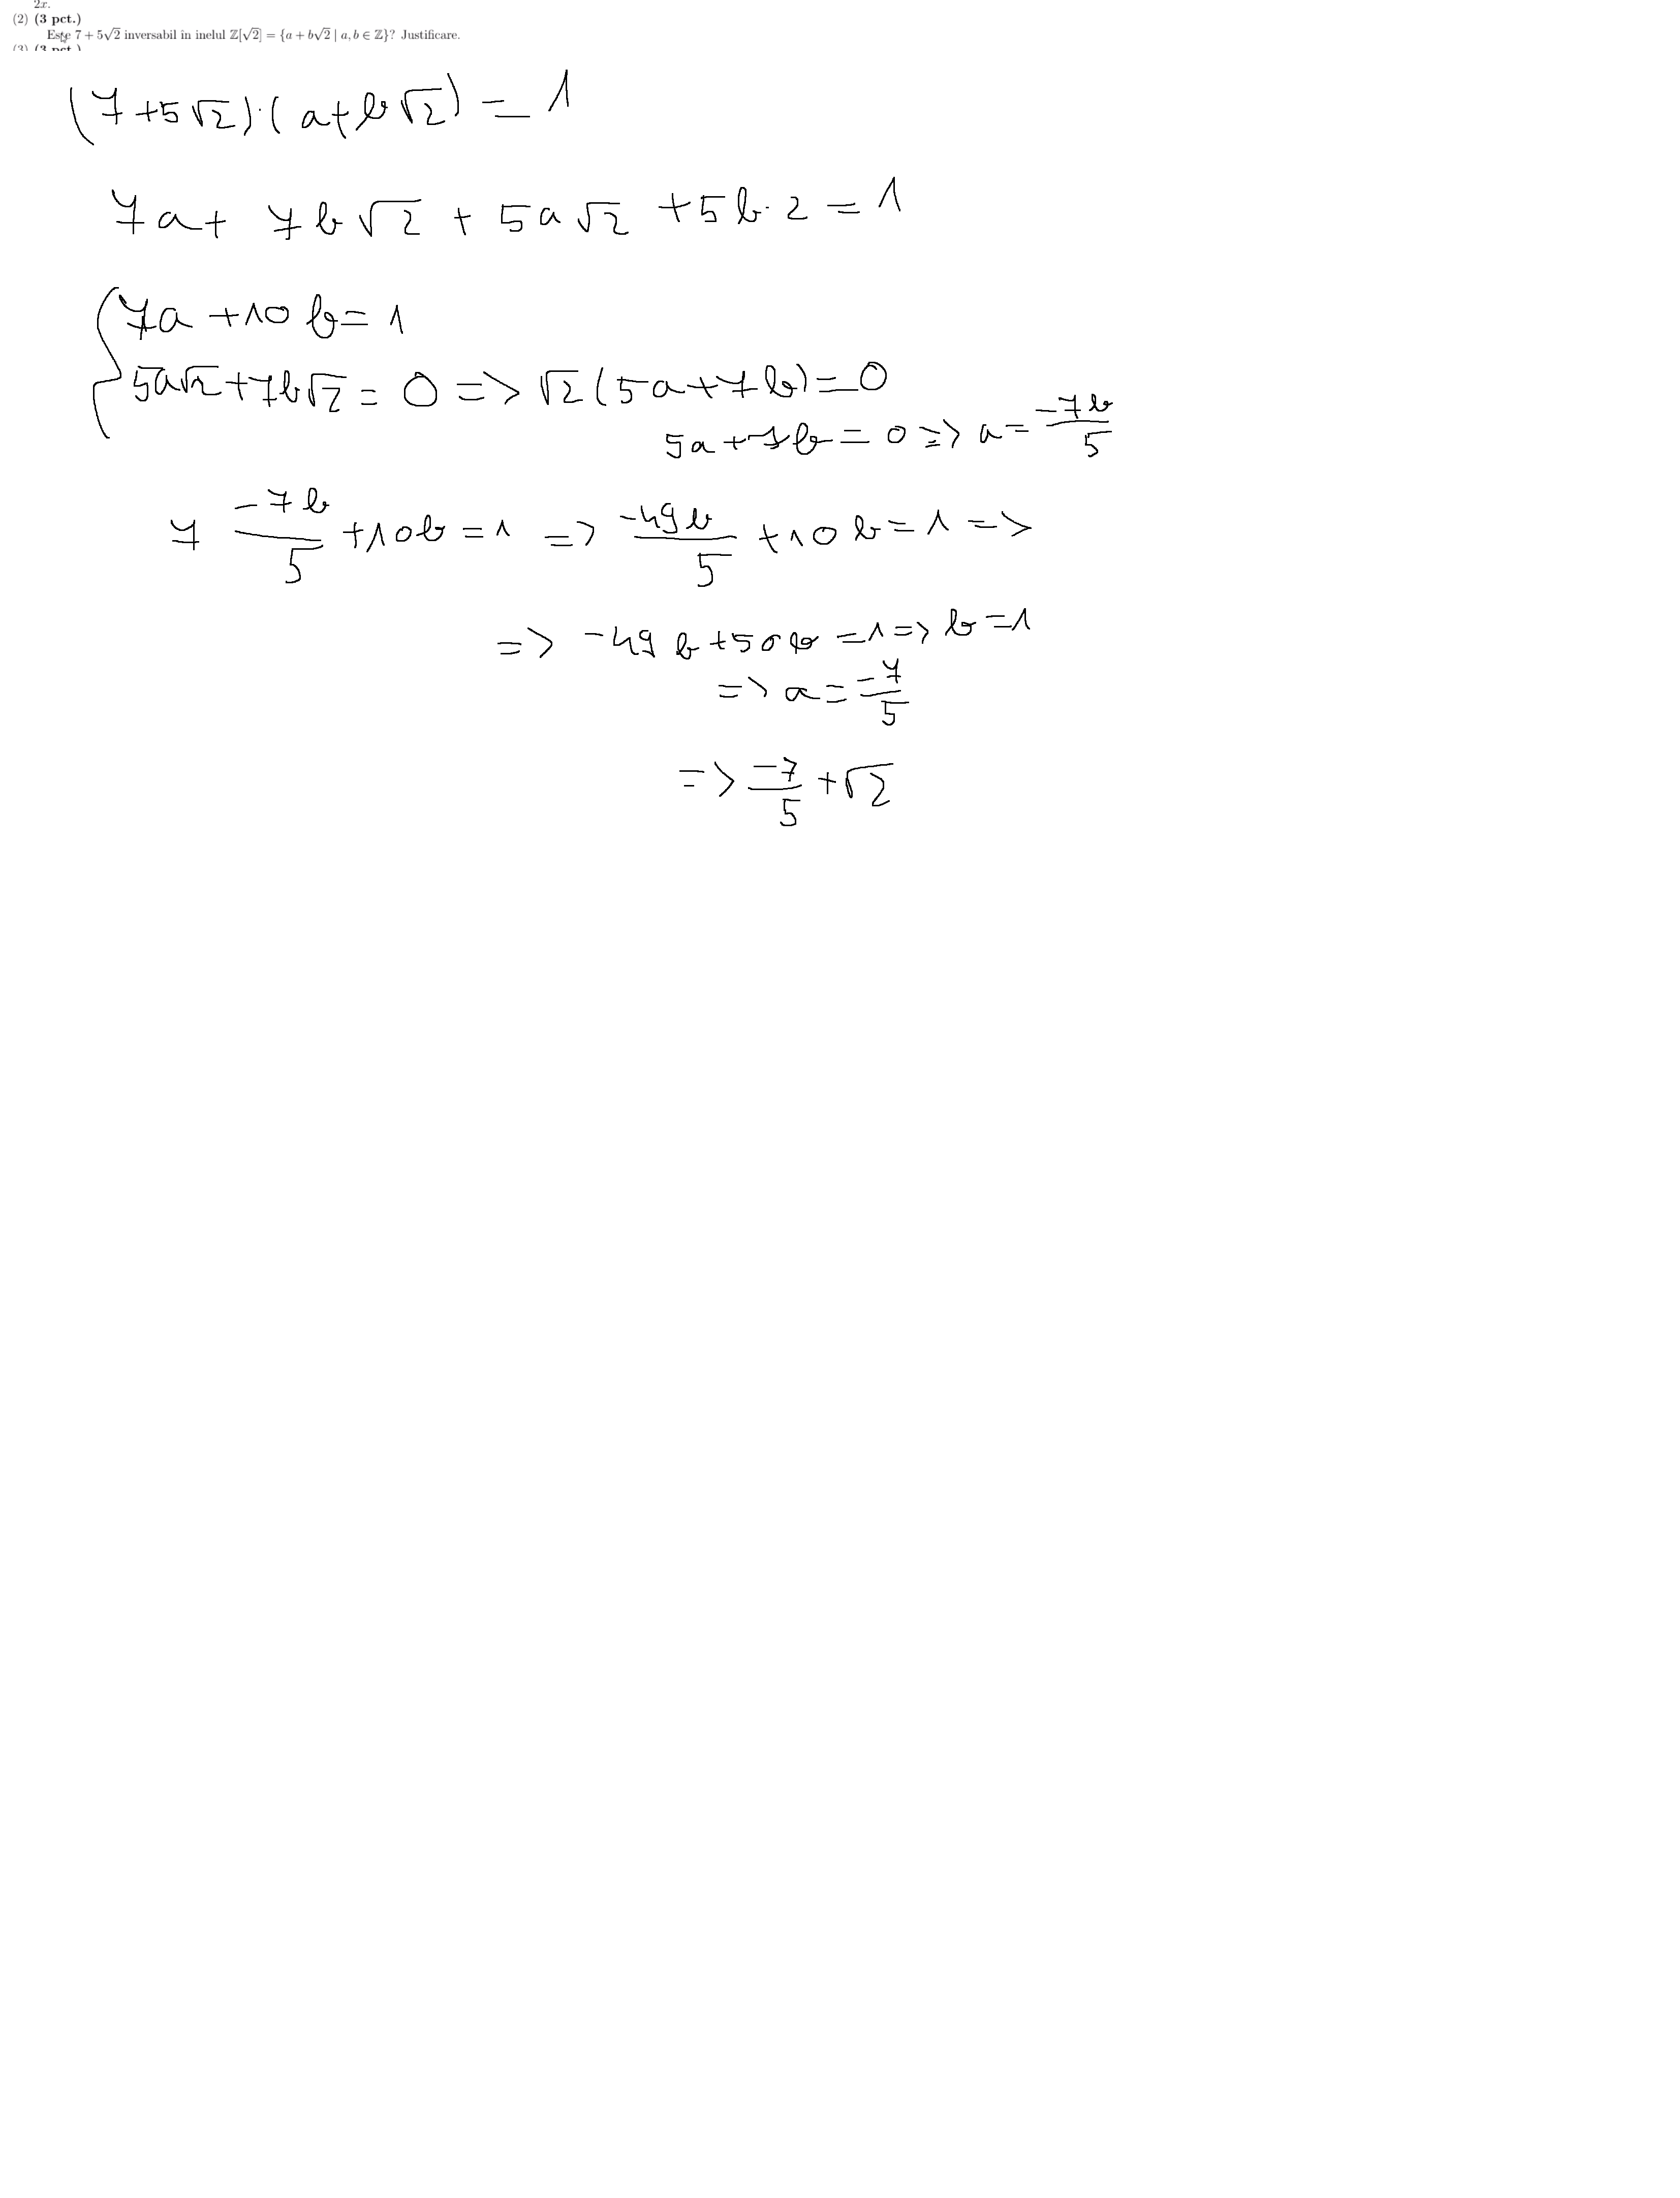 2x.
(2) (3 pct.)
Este 7 + 5√2 inversabil în inelul ℤ[√2] = {a + b√2 | a, b ∈ ℤ}? Justificare.
(3) (3 pct.)
(7+5√2)·(a+b√2) = 1
7a + 7b√2 + 5a√2 + 5b·2 = 1
{ 7a + 10b = 1
5a√2 + 7b√2 = 0 => √2(5a+7b) = 0
5a + 7b = 0 => a = -7b/5
7 -7b/5 + 10b = 1 => -49b/5 + 10b = 1 =>
=> -49b + 50b = 1 => b = 1
=> a = -7/5
=> -7/5 + √2